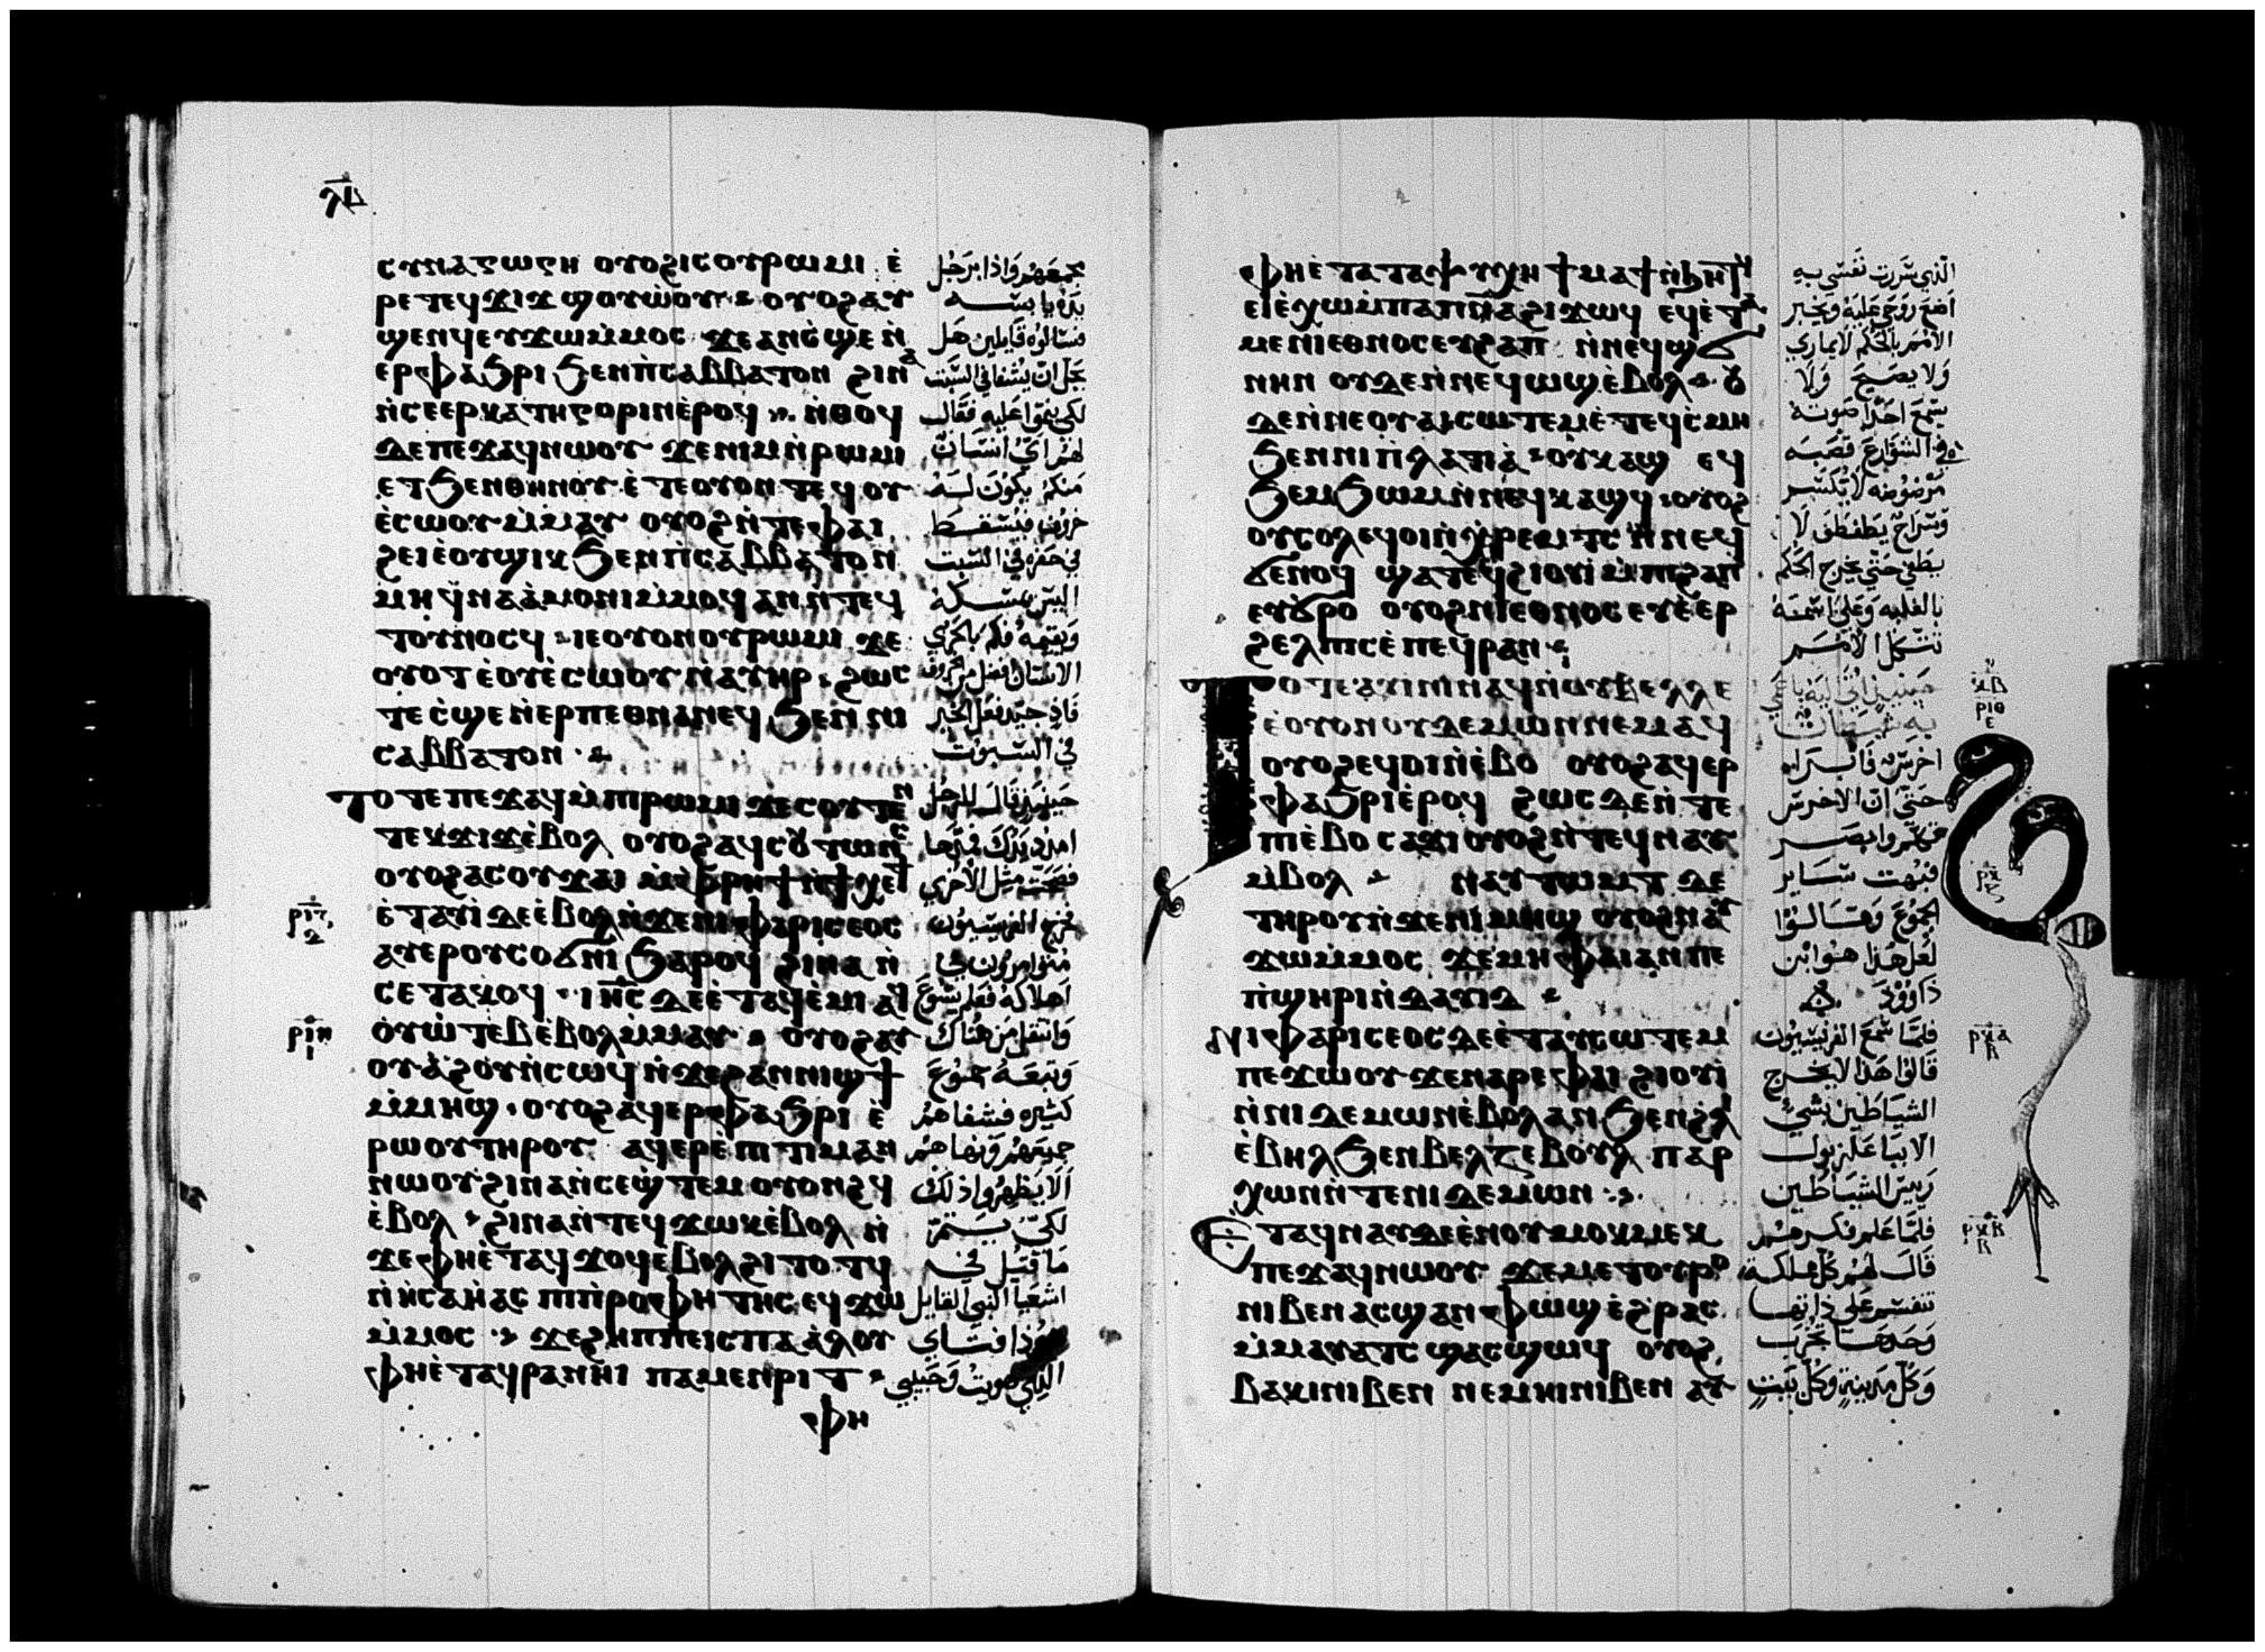 ⲗⲃ
ⲥⲩⲛⲁⲅⲱⲅⲏ ⲟⲩⲟϩ ⲓⲥ ⲟⲩⲣⲱⲙⲓ ⲉ̀
ⲣⲉ ⲧⲉϥϫⲓϫ ϣⲟⲩⲱ̀ⲟⲩ ⲟⲩⲟϩ ⲁⲩ
ϣⲉⲛϥ ⲉⲩϫⲱ ⲙ̀ⲙⲟⲥ ϫⲉ ⲁⲛ ⲥ̀ϣⲉ ⲛ̀
ⲉⲣⲫⲁϧⲣⲓ ϧⲉⲛ ⲡ̀ⲥⲁⲃⲃⲁⲧⲟⲛ ϩⲓⲛⲁ
ⲛ̀ⲥⲉⲉⲣⲕⲁⲧⲏⲅⲟⲣⲓⲛ ⲉ̀ⲣⲟϥ ⲛ̀ⲑⲟϥ
ⲇⲉ ⲡⲉϫⲁϥ ⲛⲱⲟⲩ ϫⲉ ⲛⲓⲙ ⲛ̀ⲣⲱⲙⲓ
ⲉⲧϧⲉⲛ ⲑⲏⲛⲟⲩ ⲉ̀ⲧⲉ ⲟⲩⲟⲛ ⲧⲉϥ ⲟⲩ
ⲉ̀ⲥⲱⲟⲩ ⲙ̀ⲙⲁⲩ ⲟⲩⲟϩ ⲛ̀ⲧⲉ ⲫⲁⲓ
ϩⲉⲓ ⲉ̀ⲟⲩϣⲓⲕ ϧⲉⲛ ⲡ̀ⲥⲁⲃⲃⲁⲧⲟⲛ
ⲙⲏ ϥ̀ⲛⲁⲁ̀ⲙⲟⲛⲓ ⲙ̀ⲙⲟϥ ⲁⲛ ⲛ̀ⲧⲉϥ
ⲧⲟⲩⲛⲟⲥϥ ⲓⲉ ⲟⲩⲟⲛ ⲟⲩⲣⲱⲙⲓ ϫⲉ
ⲟⲩⲟⲧ ⲉ̀ⲟⲩⲉ̀ⲥⲱⲟⲩ ⲛ̀ⲁⲩⲏⲣ ϩⲱⲥ
ⲧⲉ ⲥ̀ϣⲉ ⲛ̀ⲉⲣⲡⲉⲑⲛⲁⲛⲉϥ ϧⲉⲛ ⲛⲓ
ⲥⲁⲃⲃⲁⲧⲟⲛ
ⲧⲟⲧⲉ ⲡⲉϫⲁϥ ⲙ̀ⲡⲓⲣⲱⲙⲓ ϫⲉ ⲥⲟⲩⲧⲉⲛ
ⲧⲉⲕϫⲓϫ ⲉ̀ⲃⲟⲗ ⲟⲩⲟϩ ⲁϥⲥⲟⲩⲧⲱⲛⲥ
ⲟⲩⲟϩ ⲁⲥⲟⲩϫⲁⲓ ⲙ̀ⲫⲣⲏϯ ⲛ̀ϯⲭⲉϯ
ⲣⲓⲍ ⲉ̀ⲧⲁⲩⲓ̀ ⲇⲉ ⲉ̀ⲃⲟⲗ ⲛ̀ϫⲉ ⲛⲓⲫⲁⲣⲓⲥⲉⲟⲥ
ⲁⲩⲉⲣⲟⲩⲥⲟϭⲛⲓ ϧⲁⲣⲟϥ ϩⲓⲛⲁ ⲛ̀
ⲥⲉⲧⲁⲕⲟϥ ⲓⲏⲥ ⲇⲉ ⲉ̀ⲧⲁϥⲉ̀ⲙⲓ ⲁϥ
ⲣⲓⲏ ⲟⲩⲱ̀ⲧⲉⲃ ⲉ̀ⲃⲟⲗ ⲙ̀ⲙⲁⲩ ⲟⲩⲟϩ ⲁⲩ
ⲟⲩⲁϩⲟⲩ ⲛ̀ⲥⲱϥ ⲛ̀ϫⲉ ϩⲁⲛⲛⲓϣϯ
ⲙ̀ⲙⲏϣ ⲟⲩⲟϩ ⲁϥⲉⲣⲫⲁϧⲣⲓ ⲉ̀
ⲣⲱⲟⲩ ⲧⲏⲣⲟⲩ ⲁϥⲉⲣⲉ̀ⲡⲓⲧⲓⲙⲁⲛ
ⲛⲱⲟⲩ ϩⲓⲛⲁ ⲛ̀ⲥⲉϣ̀ⲧⲉⲙⲟⲩⲟⲛϩϥ
ⲉ̀ⲃⲟⲗ ϩⲓⲛⲁ ⲛ̀ⲧⲉϥϫⲱⲕ ⲉ̀ⲃⲟⲗ ⲛ̀
ϫⲉ ⲫⲏⲉ̀ⲧⲁϥϫⲟϥ ⲉ̀ⲃⲟⲗ ϩⲓⲧⲟⲧϥ
ⲛ̀ⲏ̀ⲥⲁⲏ̀ⲁⲥ ⲡⲓⲡ̀ⲣⲟⲫⲏⲧⲏⲥ ⲉϥϫⲱ
ⲙ̀ⲙⲟⲥ ϫⲉ ϩⲏⲡⲡⲉ ⲓⲥ ⲡⲁⲁ̀ⲗⲟⲩ
ⲫⲏⲉ̀ⲧⲁϥⲣⲁⲛⲏⲓ ⲡⲁⲙⲉⲛⲣⲓⲧ
ⲫⲏ
يجمعهم واذا برجل
يده يابسه
فسالوه قايلين هل
يحل ان يشفا في السبت
لكي ينموا عليه فقال
لهم اي انسان
منكم يكون له
خروف فيسقط
في حفره في السبت
اليس يمسكه
ويقيمه فكم بالحري
الانسان افضل من الخروف
فاذا جيد فعل الخير
في السبوت
حينيذ قال للرجل
امدد يدك فمدها
فصحت مثل الاخري
فخرج الفريسيون
متوامرون في
اهلاكه فعلم يسوع
وانتقل من هناك
وتبعه جموع
كثيره فشفاهم
جميعهم ونهاهم
الا يظهروا ذلك
لكي يتم
ما قيل في
اشعيا النبي القايل
هوذا فتاي
الذي هويت وحبيبي
ⲫⲏⲉ̀ⲧⲁ ⲧⲁⲯⲩⲭⲏ ϯⲙⲁϯ ⲛ̀ϧⲏⲧϥ
ⲉⲓⲉ̀ⲭⲱ ⲙ̀ⲡⲁⲡⲛⲁ ϩⲓϫⲱϥ ⲉϥⲉ̀ⲧⲁ
ⲙⲉ ⲛⲓⲉⲑⲛⲟⲥ ⲉⲩϩⲁⲡ ⲛ̀ⲛⲉϥϣϭ
ⲛⲏⲛ ⲟⲩⲇⲉ ⲛ̀ⲛⲉϥⲱϣ ⲉ̀ⲃⲟⲗ ⲟⲩ
ⲇⲉ ⲛ̀ⲛⲉ ⲟⲩⲁⲓ ⲥⲱⲧⲉⲙ ⲉ̀ⲧⲉϥⲥ̀ⲙⲏ
ϧⲉⲛ ⲛⲓⲡ̀ⲗⲁⲧⲓⲁ̀ ⲟⲩⲕⲁϣ ⲉϥ
ϧⲉⲙϧⲱⲙ ⲛ̀ⲛⲉϥⲕⲁϣϥ ⲟⲩⲟϩ
ⲟⲩⲥⲟⲗ ⲉϥⲟⲓ ⲛ̀ⲭⲣⲉⲙⲧⲥ ⲛ̀ⲛⲉϥ
ϭⲉⲛⲟϥ ϣⲁⲧⲉϥϩⲓⲟⲩⲓ̀ ⲙ̀ⲡⲓϩⲁⲡ
ⲉⲩϭⲣⲟ ⲟⲩⲟϩ ⲛⲓⲉⲑⲛⲟⲥ ⲉⲩⲉ̀ⲉⲣ
ϩⲉⲗⲡⲓⲥ ⲉ̀ⲡⲉϥⲣⲁⲛ
ⲧⲟⲧⲉ ⲁⲩⲓⲛⲓ ⲛⲁϥ ⲛ̀ⲟⲩⲃⲉⲗⲗⲉ
ⲉ̀ⲟⲩⲟⲛ ⲟⲩⲇⲉⲙⲱⲛ ⲛⲉⲙⲁϥ
ⲟⲩⲟϩ ⲉϥⲟⲓ ⲛ̀ⲉ̀ⲃⲟ ⲟⲩⲟϩ ⲁϥⲉⲣ
ⲫⲁϧⲣⲓ ⲉ̀ⲣⲟϥ ϩⲱⲥ ⲇⲉ ⲛ̀ⲧⲉ
ⲡⲓⲉⲃⲟ ⲥⲁϫⲓ ⲟⲩⲟϩ ⲛ̀ⲧⲉϥⲛⲁⲩ
ⲙ̀ⲃⲟⲗ ⲛⲁⲩⲧⲱⲙⲧ ⲇⲉ
ⲧⲏⲣⲟⲩ ⲛ̀ϫⲉ ⲛⲓⲙⲏϣ ⲟⲩⲟϩ ⲛⲁⲩ
ϫⲱ ⲙ̀ⲙⲟⲥ ϫⲉ ⲙⲏ ⲫⲁⲓ ⲁⲛ ⲡⲉ
ⲡ̀ϣⲏⲣⲓ ⲛ̀ⲇⲁⲩⲓⲇ
ⲛⲓⲫⲁⲣⲓⲥⲉⲟⲥ ⲇⲉ ⲉ̀ⲧⲁⲩⲥⲱⲧⲉⲙ
ⲡⲉϫⲱⲟⲩ ϫⲉ ⲛⲁⲣⲉ ⲫⲁⲓ ϩⲓⲟⲩⲓ̀
ⲛ̀ⲛⲓⲇⲉⲙⲱⲛ ⲉ̀ⲃⲟⲗ ⲁⲛ ϧⲉⲛ ϩⲗⲓ
ⲉ̀ⲃⲏⲗ ϧⲉⲛ ⲃⲉⲗⲍⲉⲃⲟⲩⲗ ⲡⲁⲣ
ⲭⲱⲛ ⲛ̀ⲧⲉ ⲛⲓⲇⲉⲙⲱⲛ
ⲉⲧⲁϥⲛⲁⲩ ⲇⲉ ⲉ̀ⲛⲟⲩⲙⲟⲕⲙⲉⲕ
ⲡⲉϫⲁϥ ⲛⲱⲟⲩ ϫⲉ ⲙⲉⲧⲟⲩⲣⲟ
ⲛⲓⲃⲉⲛ ⲁⲥϣⲁⲛⲫⲱϣ ⲉ̀ϩⲣⲁⲥ
ⲙ̀ⲙⲁⲩⲁⲧⲥ ϣⲁⲥϣⲱϥ ⲟⲩⲟϩ
ⲃⲁⲕⲓ ⲛⲓⲃⲉⲛ ⲛⲉⲙ ⲏⲓ ⲛⲓⲃⲉⲛ ⲁⲩ
الذي سرت نفسي به
اضع روحي عليه ويخبر
الامم بالحكم لا يماري
ولا يصيح ولا
يسمع احد صوته
في الشوارع قصبه
مرضوضه لا تكسر
وسراج يطفطف لا
يطفي حتي يخرج الحكم
بالغلبه وعلي اسمه
تتكل الامم
اخرس فابراه
حتي ان الاخرس
تكلم وابصر
فبهت ساير
الجموع وقالوا
لعل هذا هو ابن
داوود
فلما سمع الفريسيون
قالوا هذا لا يخرج
الشياطين بشي
الا بباعلزبول
رييس الشياطين
فلما علم فكرهم
قال لهم كل مملكه
تنقسم علي ذاتها
وحدها تخرب
وكل مدينه وكل بيت
ⲣⲓⲑ
ⲣⲕ
ⲣⲕⲁ
ⲣⲕⲃ